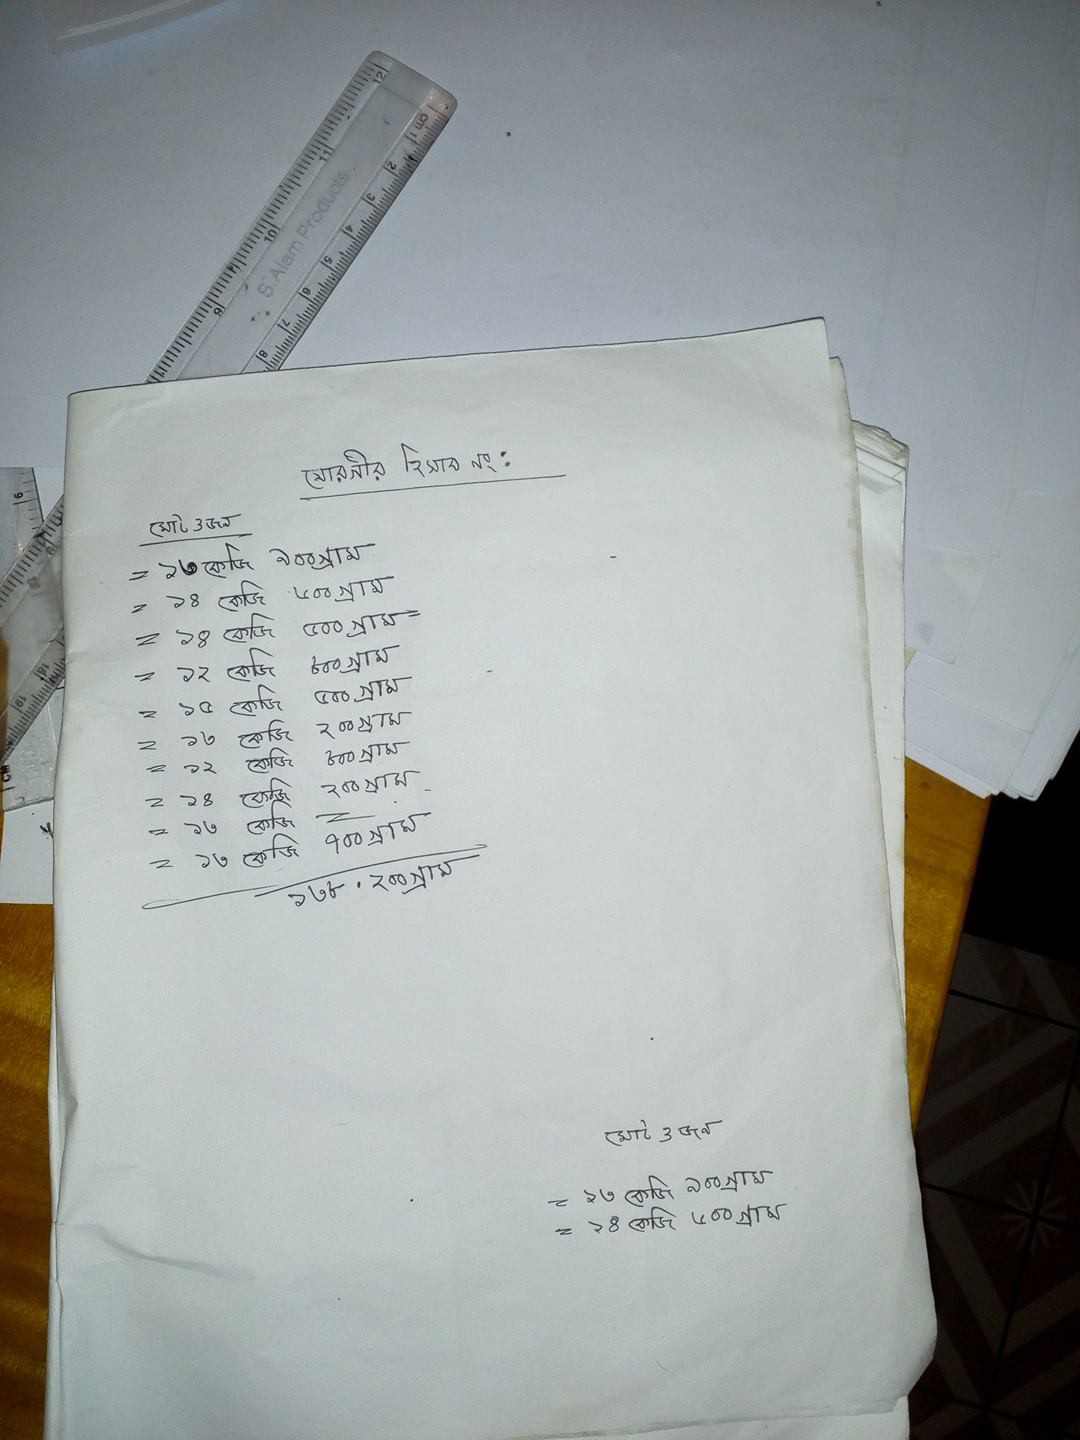 S. Alam Products
মোরসীর হিসাব নং:
মোট ৩জন
= ১৩ কেজি ৯০০গ্রাম
= ১৪ কেজি ৬০০গ্রাম
= ১৪ কেজি ৫০০গ্রাম
= ১২ কেজি ৮০০গ্রাম
= ১৫ কেজি ৫০০গ্রাম
= ১৩ কেজি ২০০গ্রাম
= ১২ কেজি ৮০০গ্রাম
= ১৪ কেজি ২০০গ্রাম
= ১৩ কেজি =
= ১৩ কেজি ৭০০গ্রাম
১৩৮.২০০গ্রাম
মোট ৩ জন
= ১৩ কেজি ৯০০গ্রাম
= ১৪ কেজি ৬০০গ্রাম